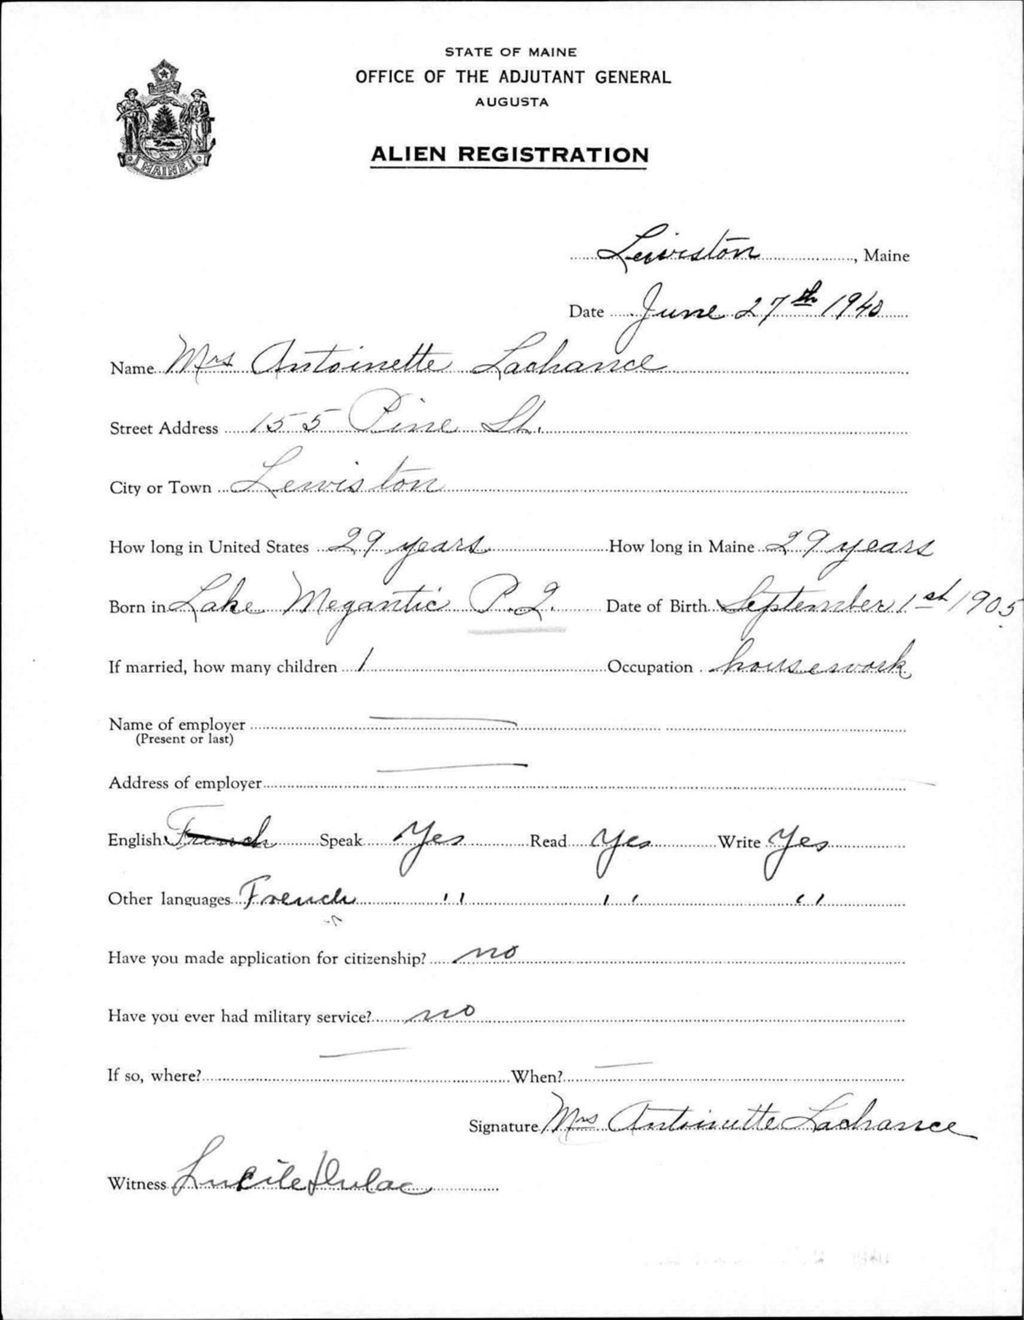 STATE OF MAINE
OFFICE OF THE ADJUTANT GENERAL
AUGUSTA
MAINE
ALIEN REGISTRATION
Lewiston, Maine
Date June 27th 1940
Name Mrs Antoinette Lachance
Street Address 155 Pine St.
City or Town Lewiston
How long in United States 29 years How long in Maine 29 years
Born in Lake Megantic P.Q. Date of Birth September 1st 1905
If married, how many children 1 Occupation housework
Name of employer
(Present or last)
Address of employer
English French Speak Yes Read Yes Write Yes
Other languages French " " "
Have you made application for citizenship? no
Have you ever had military service? no
If so, where? When?
Signature Mrs Antoinette Lachance
Witness Lucile Dulac